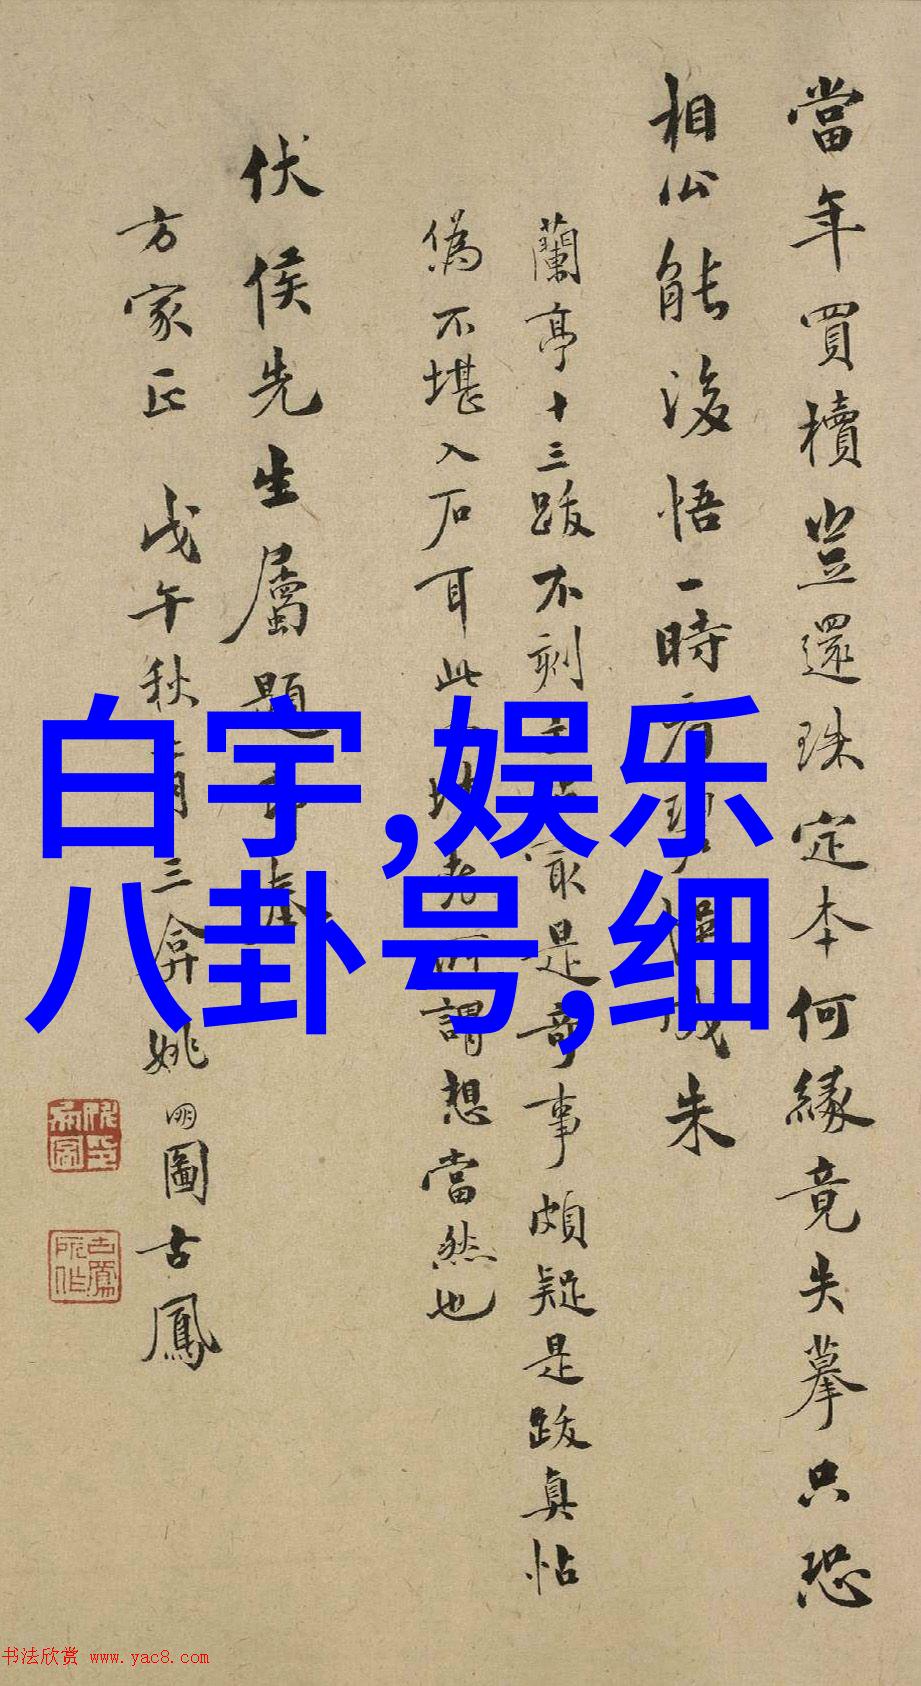 當年買櫝豈還珠定本何緣竟失摹只恐
相公能後悟一時看碧成朱
蘭亭十三跋不刻是竒事頗疑是跋真帖
偽不堪入石耳此所謂想當然也
伏侯先生屬題
方家正 戊午秋三月三弇姚明圖古鳳
白宇,娱乐
八卦号,细
书法欣赏 www.yac8.com